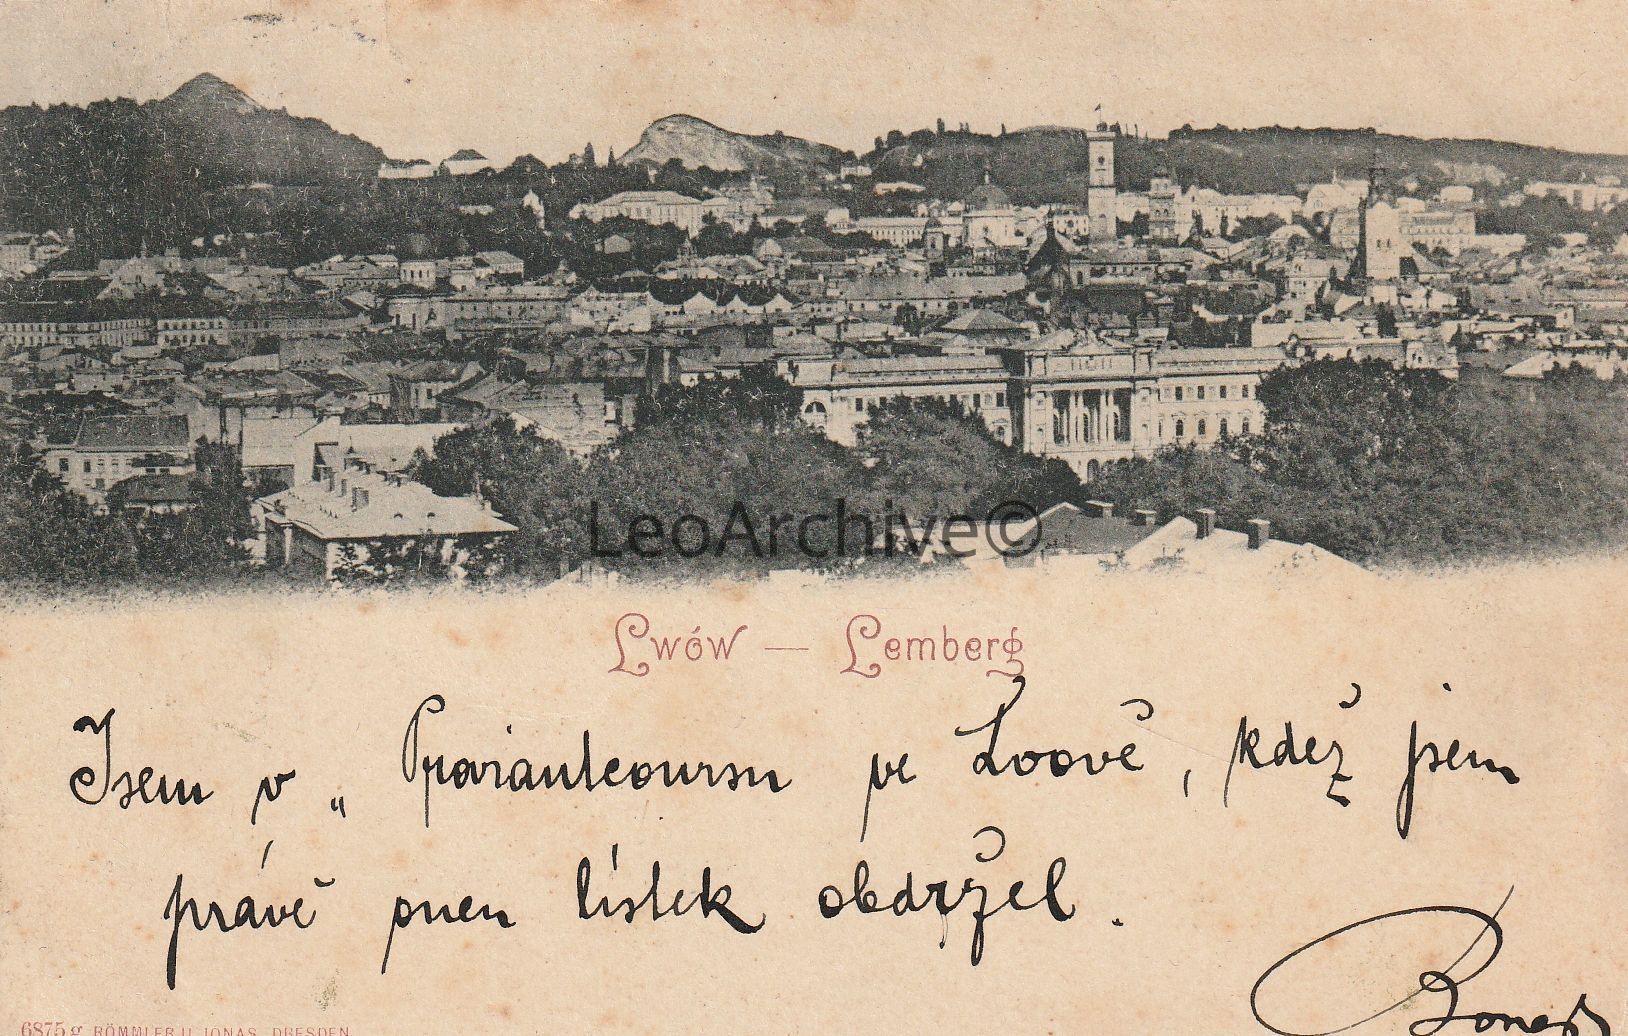 LeoArchive©
Lwów — Lemberg
Jsem v „Proviantcoursu ve Lvově, kdež jsem
právě onen lístek obdržel.
6875 g RÖMMLER U. JONAS, DRESDEN